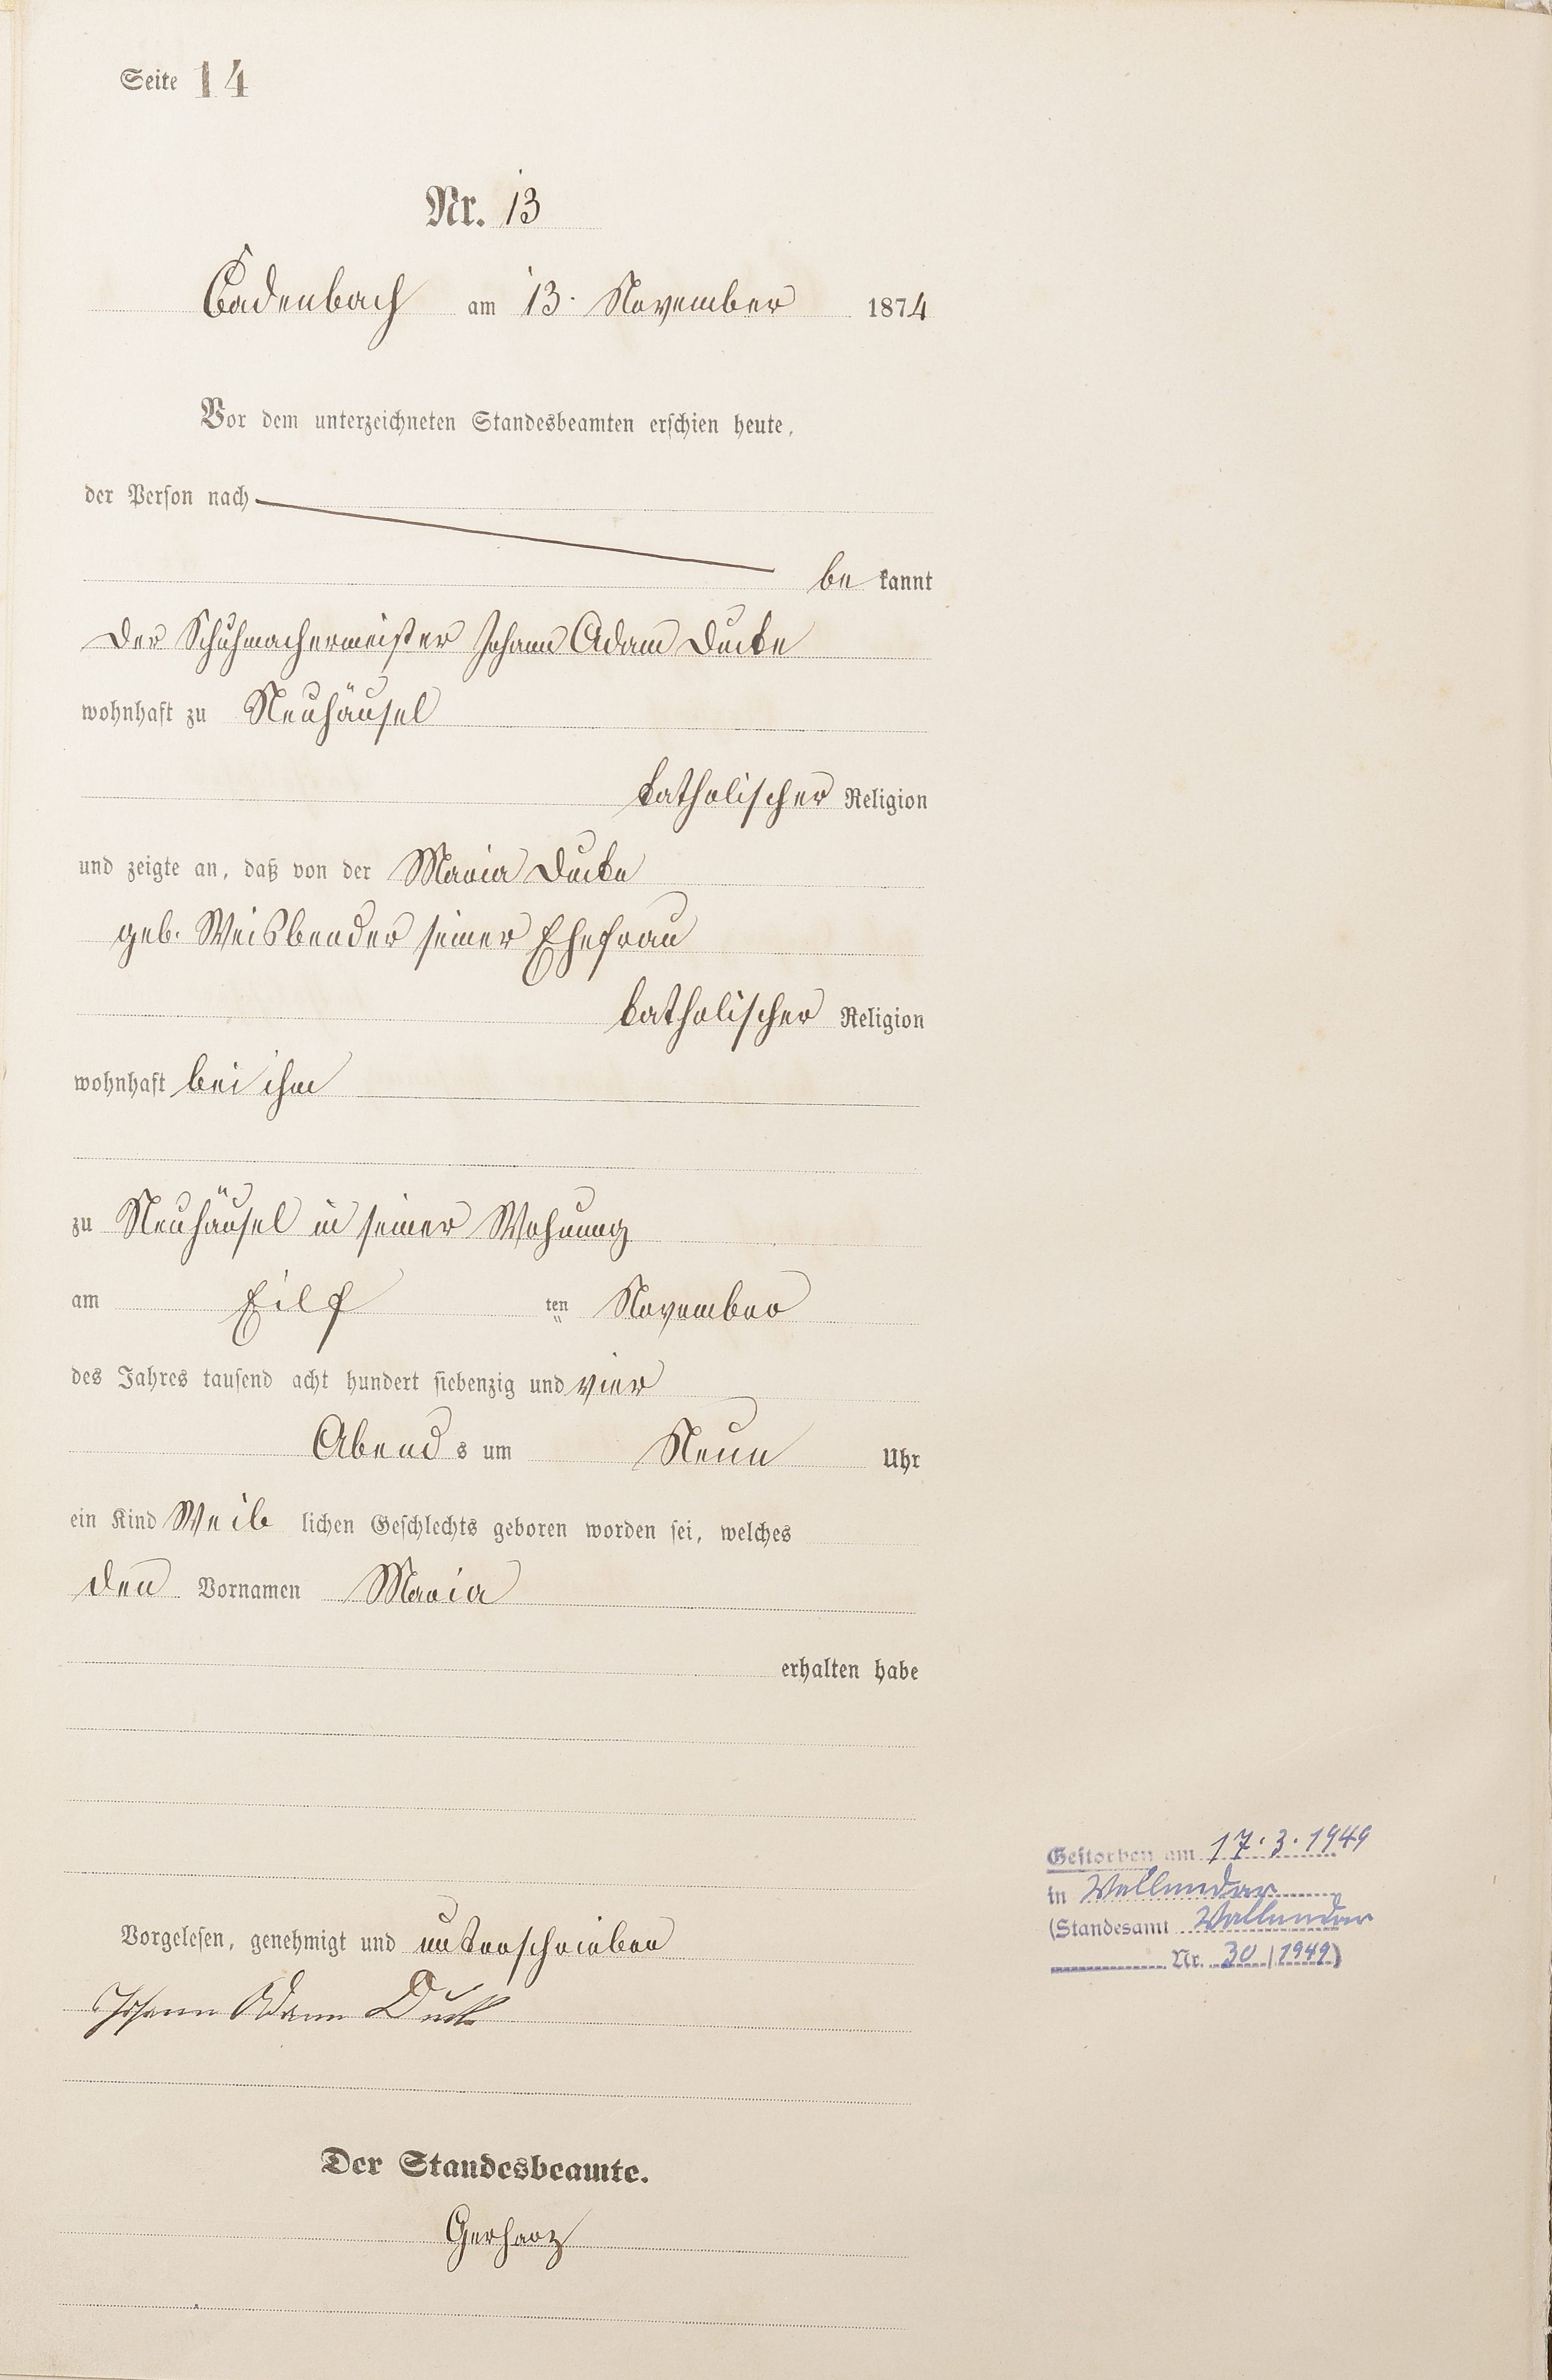 Seite 14
Nr. 13
Cadenbach am 13. November 1874
Vor dem unterzeichneten Standesbeamten erschien heute,
der Person nach
be kannt
der Schuhmachermeister Johann Adam Ducke
wohnhaft zu Neuhäusel
katholischer Religion
und zeigte an, daß von der Maria Ducke
geb. Weisbender seiner Ehefrau
katholischer Religion
wohnhaft bei ihm
zu Neuhäusel in seiner Wohnung
am Eilf ten November
des Jahres tausend acht hundert siebenzig und vier
Abend s um Neun Uhr
ein Kind Weib lichen Geschlechts geboren worden sei, welches
den Vornamen Maria
erhalten habe
Gestorben am 17.3.1949
in Vallendar
(Standesamt Vallendar
Nr. 30/1949)
Vorgelesen, genehmigt und unterschrieben
Johann Adam Ducke
Der Standesbeamte.
Gerharz